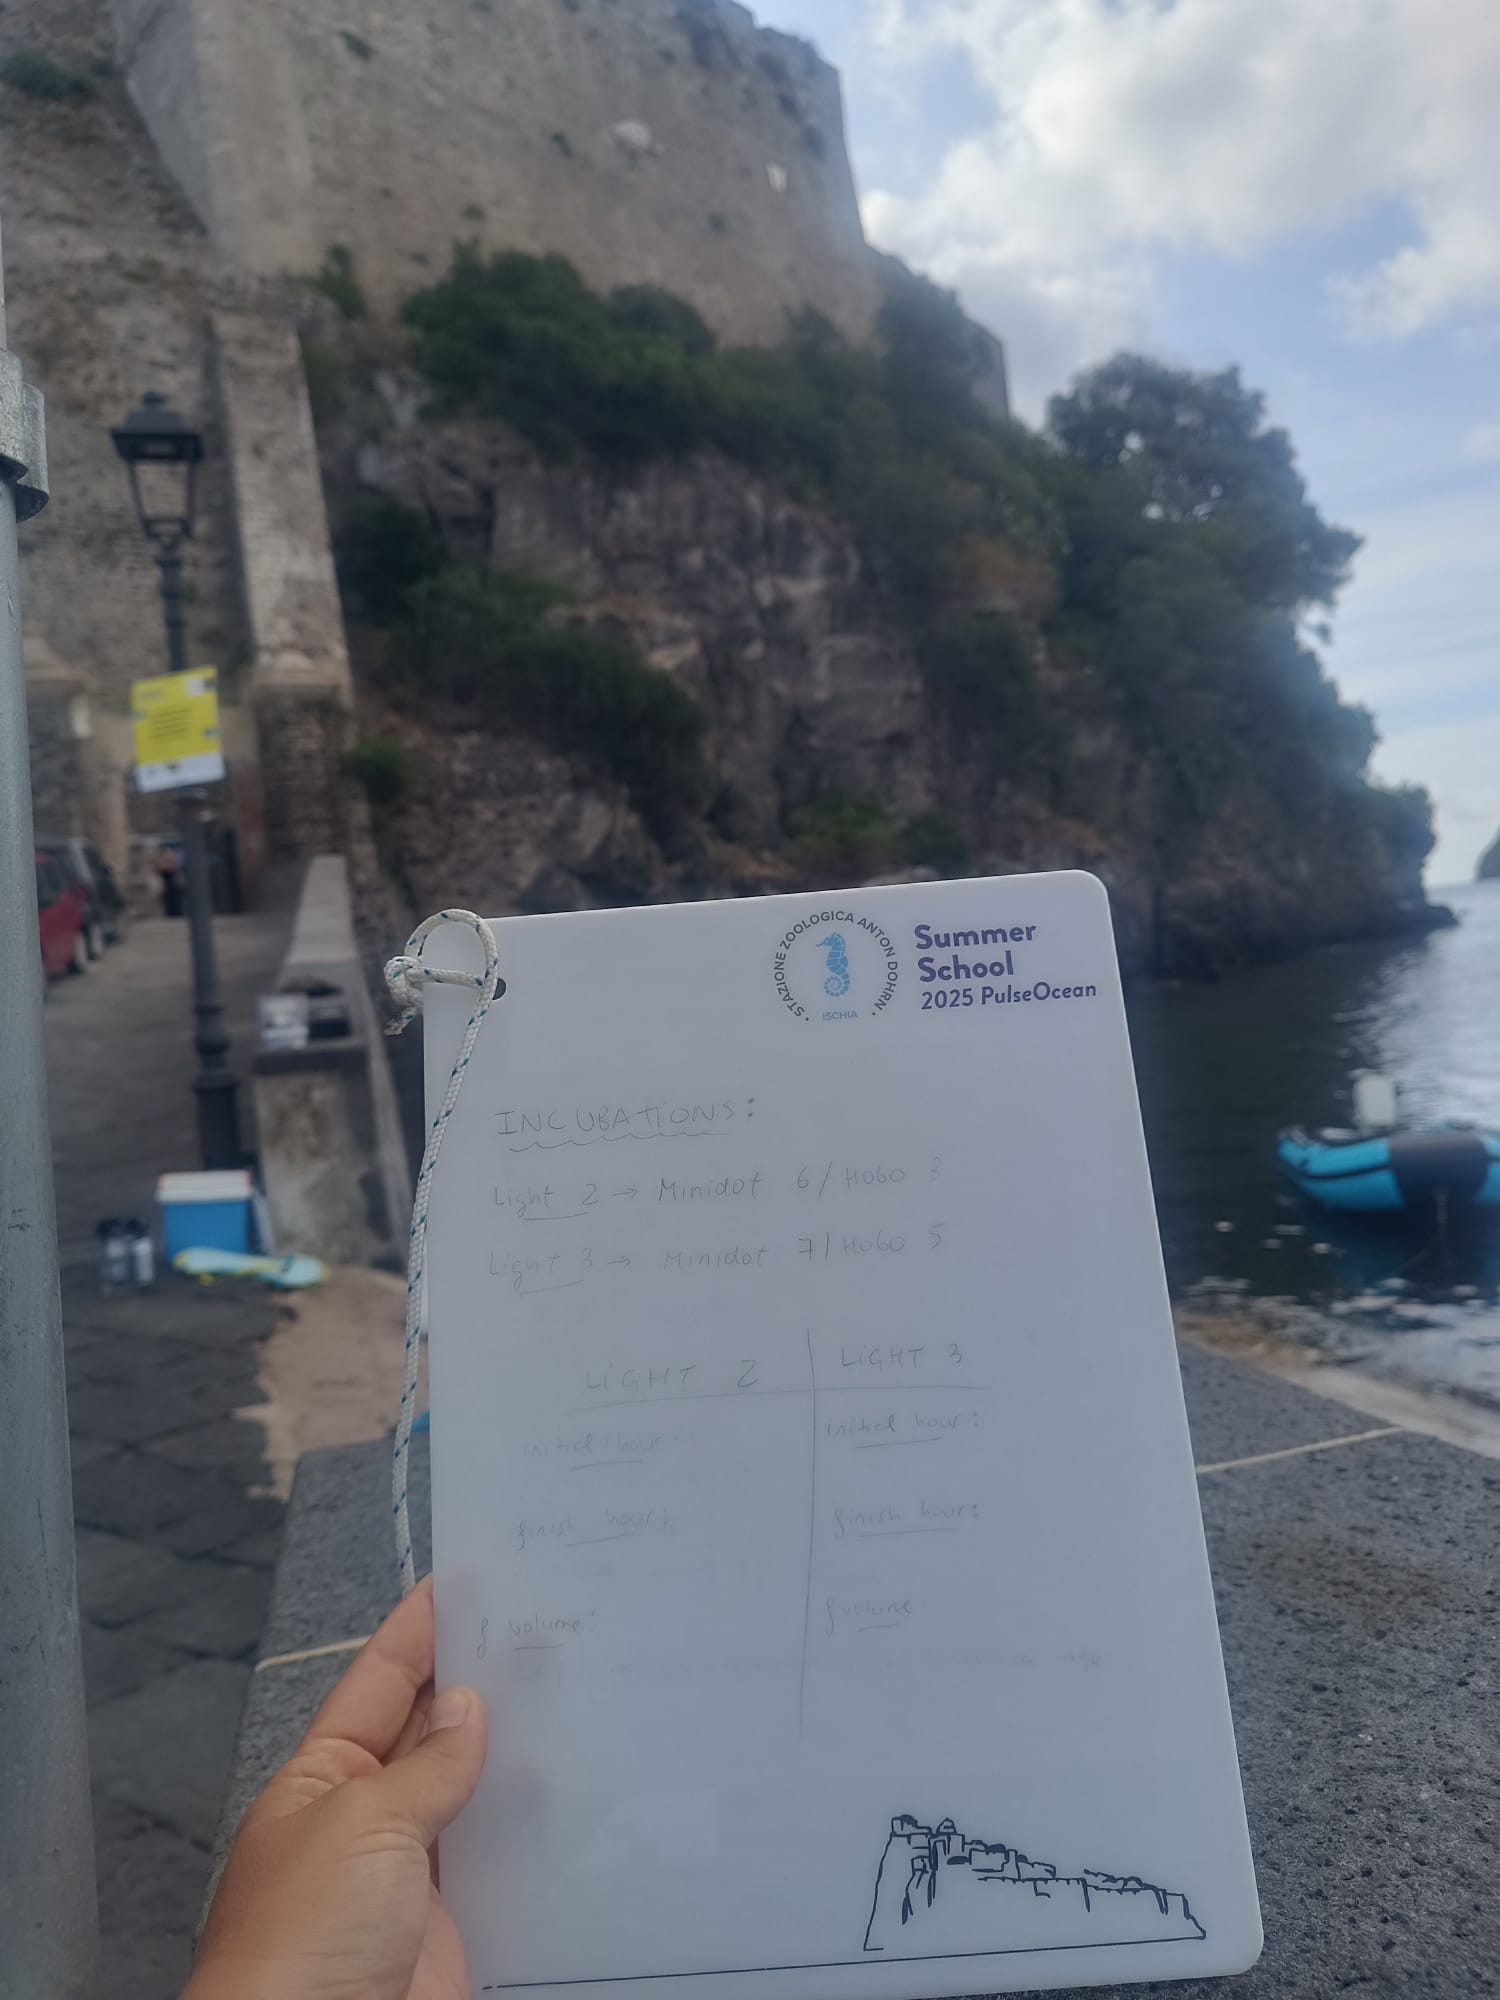 STAZIONE ZOOLOGICA ANTON DOHRN
ISCHIA
Summer
School
2025 PulseOcean
INCUBATIONS:
Light 2 → Minidot 6/HOBO 3
Light 3 → Minidot 7/HOBO 5
LIGHT 2
LIGHT 3
initial hour:
initial hour:
finish hour:
finish hour:
f volume:
f volume